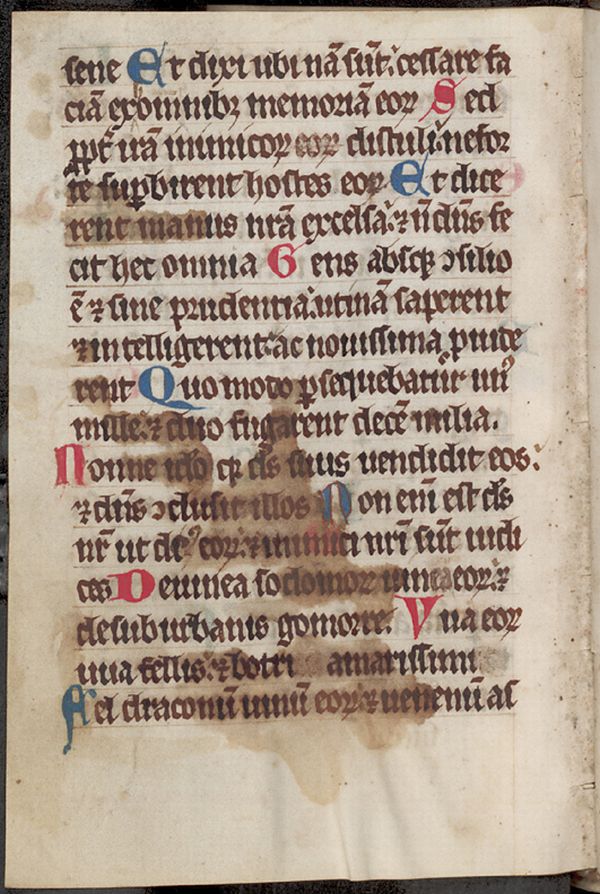 sene Et dixi ubi nā sūt: cessare fa
ciā ex omnibꝫ memoriā eoꝝ Sed
ꝓpt̄ irā inimicoꝝ eoꝝ distuli: ne for
te suꝑbirent hostes eoꝝ Et dice
rent manus nrā excelsa: ⁊ n̄ dn̄s fe
cit hec omnia Gens absqꝫ ↄsilio
ē ⁊ sine prudentia: utinā saperent
⁊ intelligerent: ac nouissima ꝓuide
rent Quo modo ꝑsequebatur un᷒
mille: ⁊ duo fugarent decē milia.
Nonne ideo qꝫ ds̄ suus uendidit eos:
⁊ dn̄s ↄclusit illos Non eni est ds̄
nr̄ ut de᷒ eoꝝ: ⁊ inimici nr̄i sūt iudi
ces De uinea sodomoꝝ uinea eoꝝ: ⁊
de suburbanis gomorre: Vua eoꝝ
uua fellis: ⁊ botri amarissimi
Fel draconū uinū eoꝝ: ⁊ uenenū as